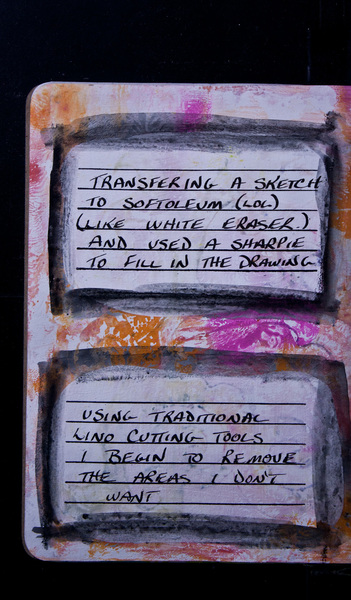 TRANSFERING A SKETCH
TO SOFTOLEUM (LOL)
(LIKE WHITE ERASER.)
AND USED A SHARPIE
TO FILL IN THE DRAWING
USING TRADITIONAL
LINO CUTTING TOOLS
I BEGIN TO REMOVE
THE AREAS I DON'T
WANT